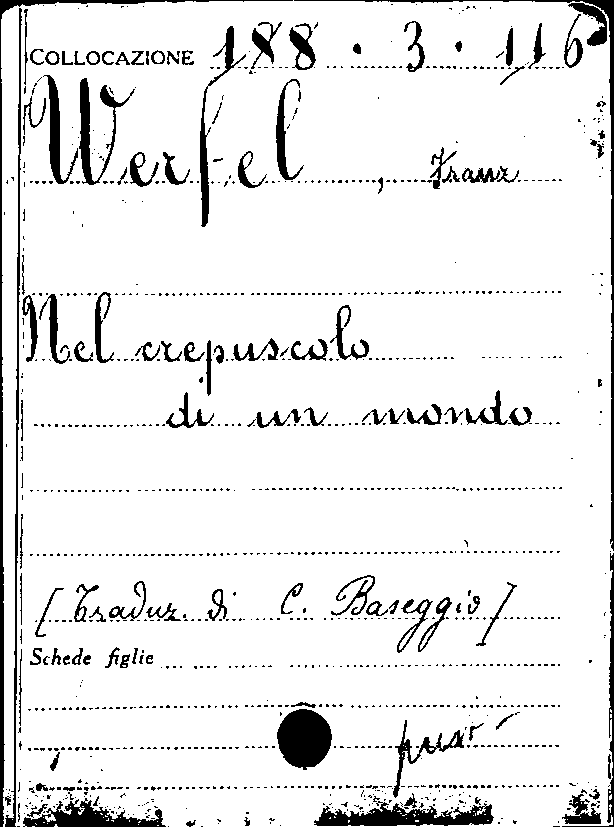 COLLOCAZIONE 188 · 3 · 116
Werfel, Franz
Nel crepuscolo
di un mondo
[Traduz. di C. Baseggio]
Schede figlie